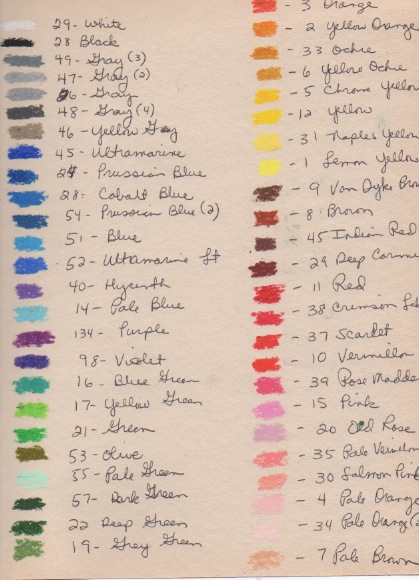 29- White
28 Black
49- Gray (3)
47- Gray (2)
26- Gray
48- Gray (4)
46- Yellow Gray
45- Ultramarine
24- Prussian Blue
28- Cobalt Blue
54- Prussian Blue (2)
51- Blue
52- Ultramarine Lt
40- Hycinth
14- Pale Blue
134- Purple
98- Violet
16- Blue Green
17- Yellow Green
21- Green
53- Olive
55- Pale Green
57- Dark Green
22 Deep Green
19- Grey Green
- 3 Orange
- 2 Yellow Orange
- 33 Ochre
- 6 Yellow Ochre
- 5 Chrome Yellow
- 12 Yellow
- 31 Naples Yellow
- 1 Lemon Yellow
- 9 Van Dyke Brow
- 8 Brown
- 45 Indian Red
- 29 Deep Carmine
- 11 Red
- 38 Crimson Lak
- 37 Scarlet
- 10 Vermillon
- 39 Rose Madde
- 15 Pink
- 20 Old Rose
- 35 Pale Vermillon
- 30 Salmon Pink
- 4 Pale Orange
- 34 Pale Orang (2
- 7 Pale Brown